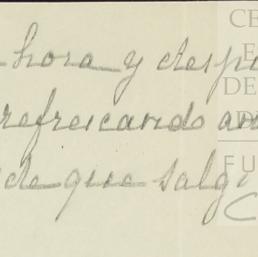 hora y despu
refrescando an
de que salg
CE
E
DE
D
FU
C